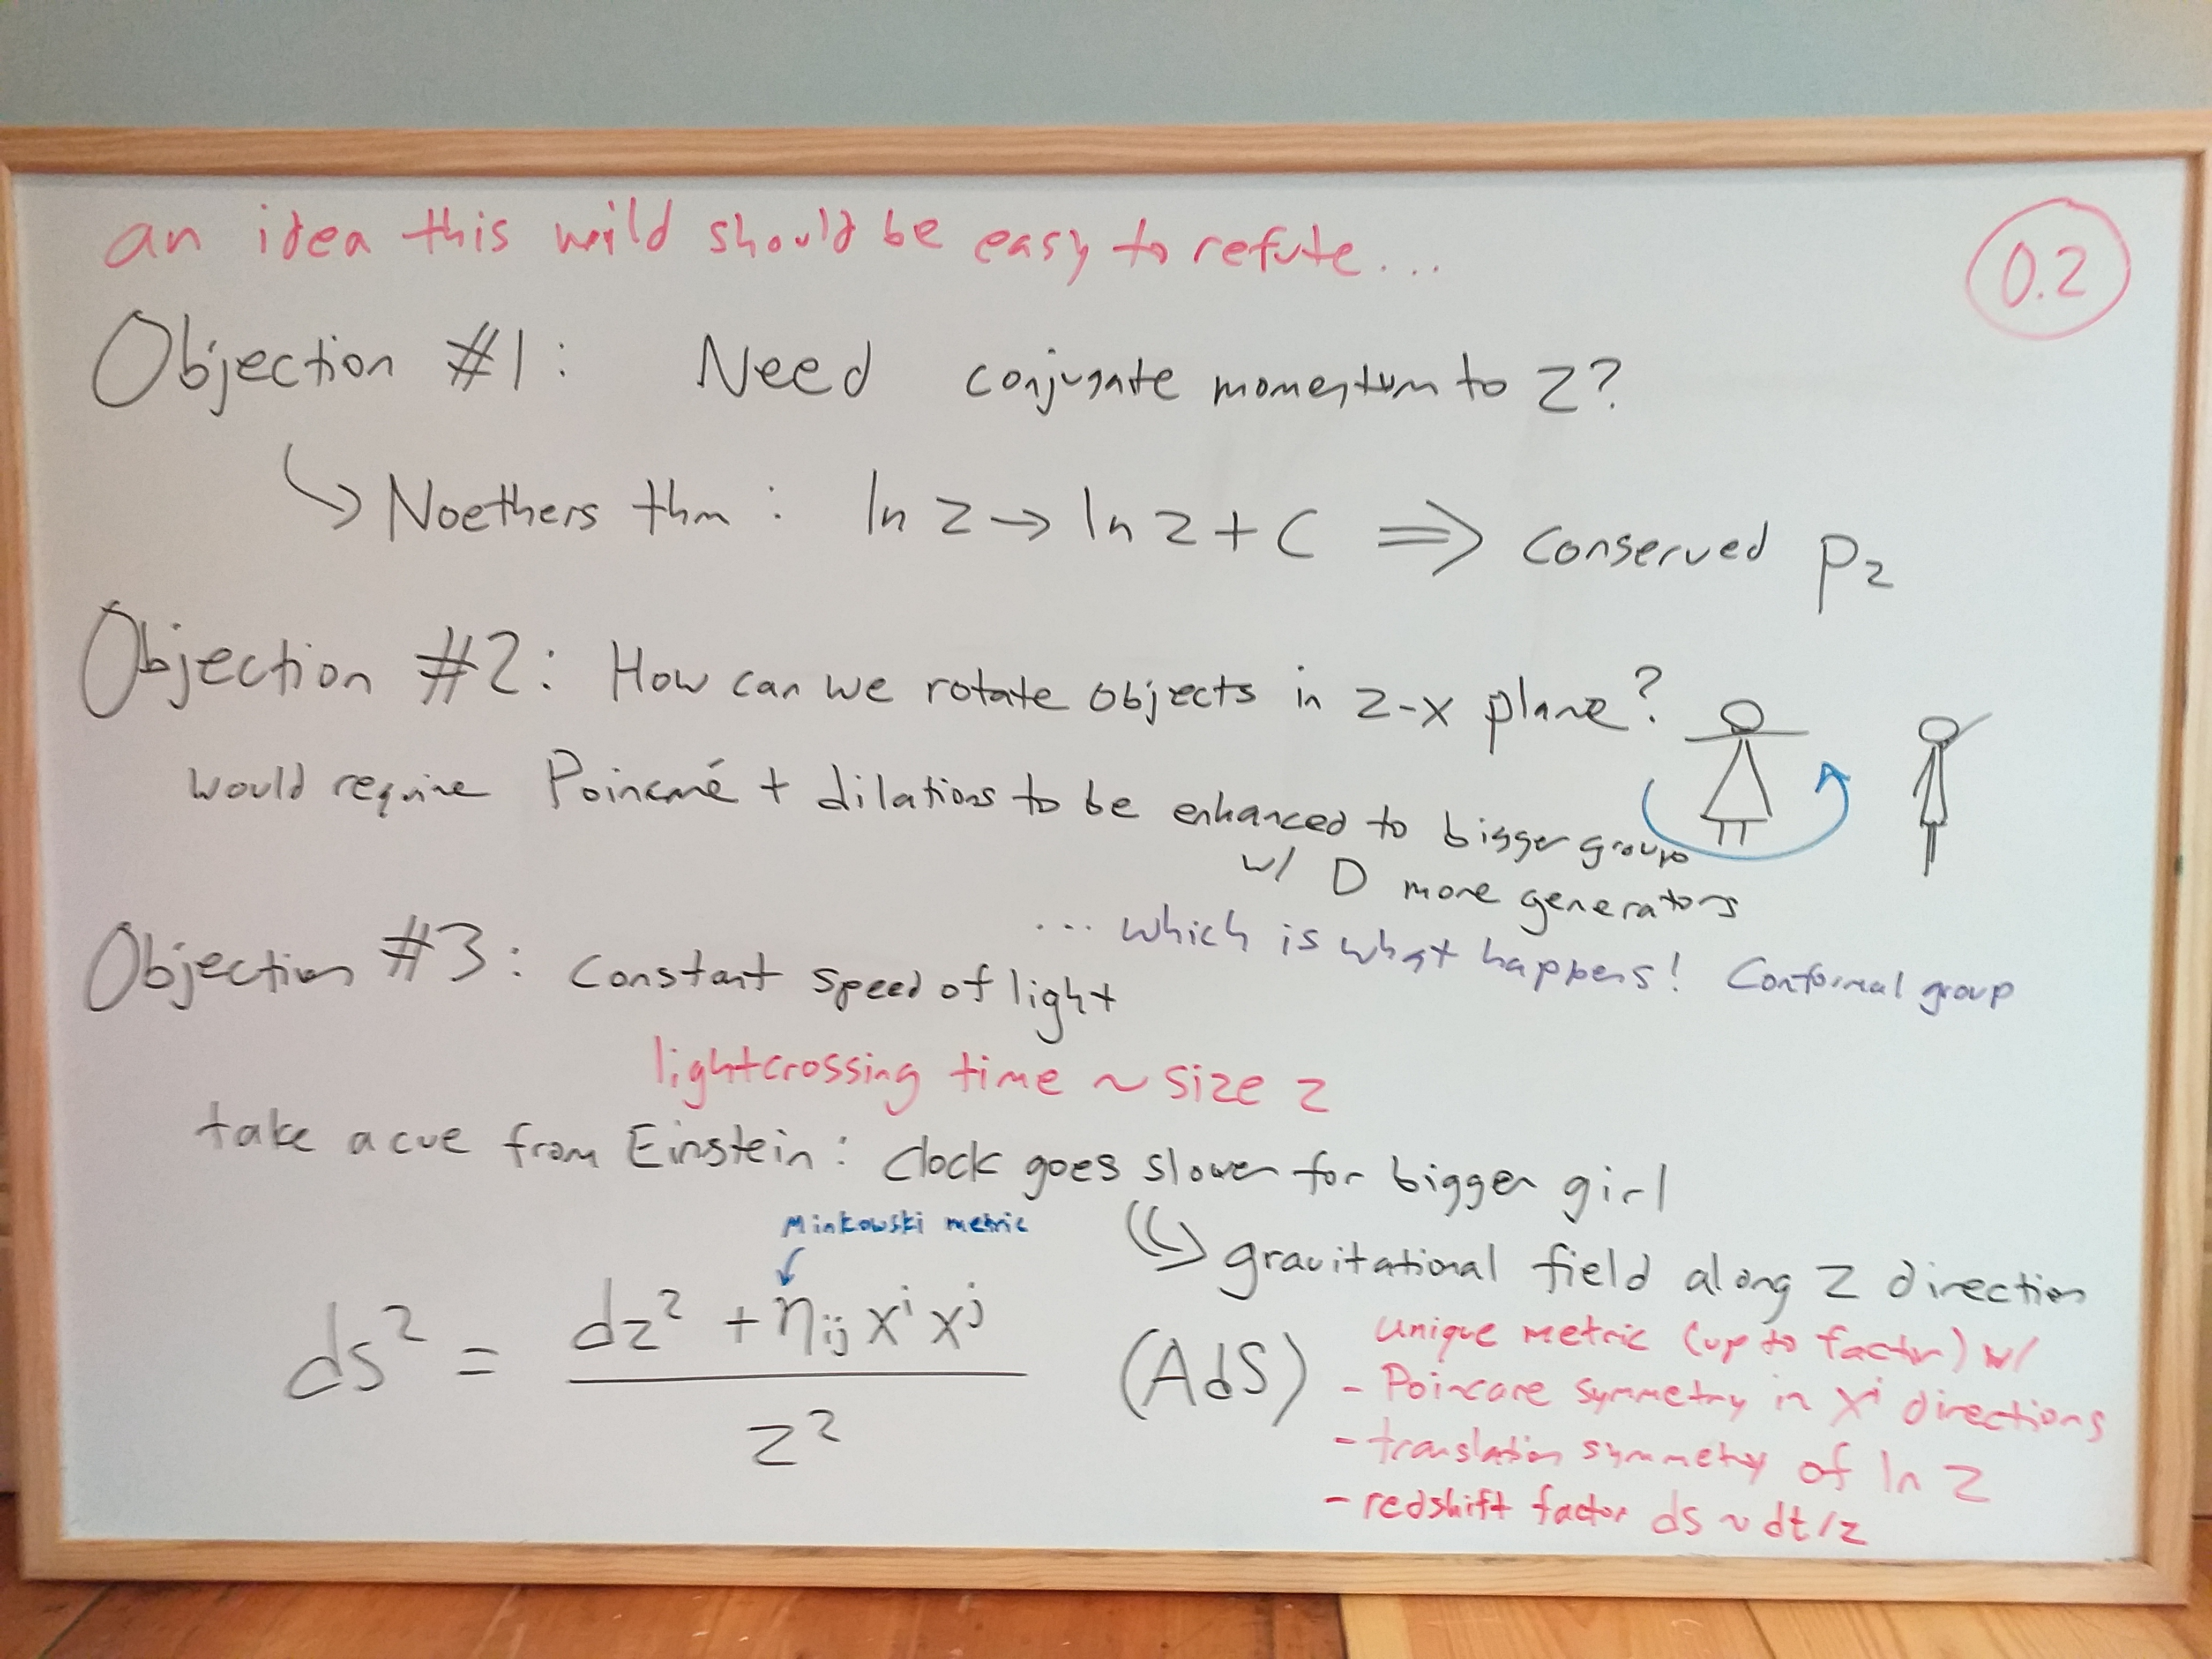 an idea this wild should be easy to refute...
0.2
Objection #1: Need conjugate momentum to z?
↳ Noethers thm: ln z → ln z + C ⟹ conserved p_z
Objection #2: How can we rotate objects in z-x plane?
would require Poincaré + dilations to be enhanced to bigger group
w/ D more generators
... which is what happens! Conformal group
Objection #3: Constant speed of light
lightcrossing time ~ size z
take a cue from Einstein: clock goes slower for bigger girl
↳ gravitational field along z direction
Minkowski metric
ds² = (dz² + η_ij x^i x^j) / z² (AdS)
unique metric (up to factor) w/
- Poincare symmetry in x^i directions
- translation symmetry of ln z
- redshift factor ds ~ dt/z